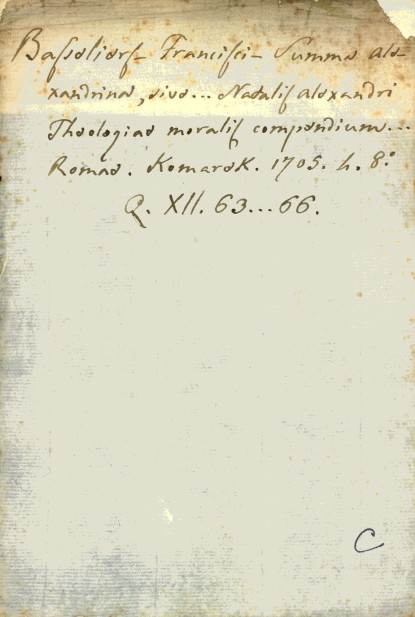 Baſseliers- Franciſci- Summa ale-
xandrina, sive... Natalis alexandri
Theologiae moraliſ compendium...
Romae. Komarek. 1705. 4. 8º
Q. XII. 63...66.
C